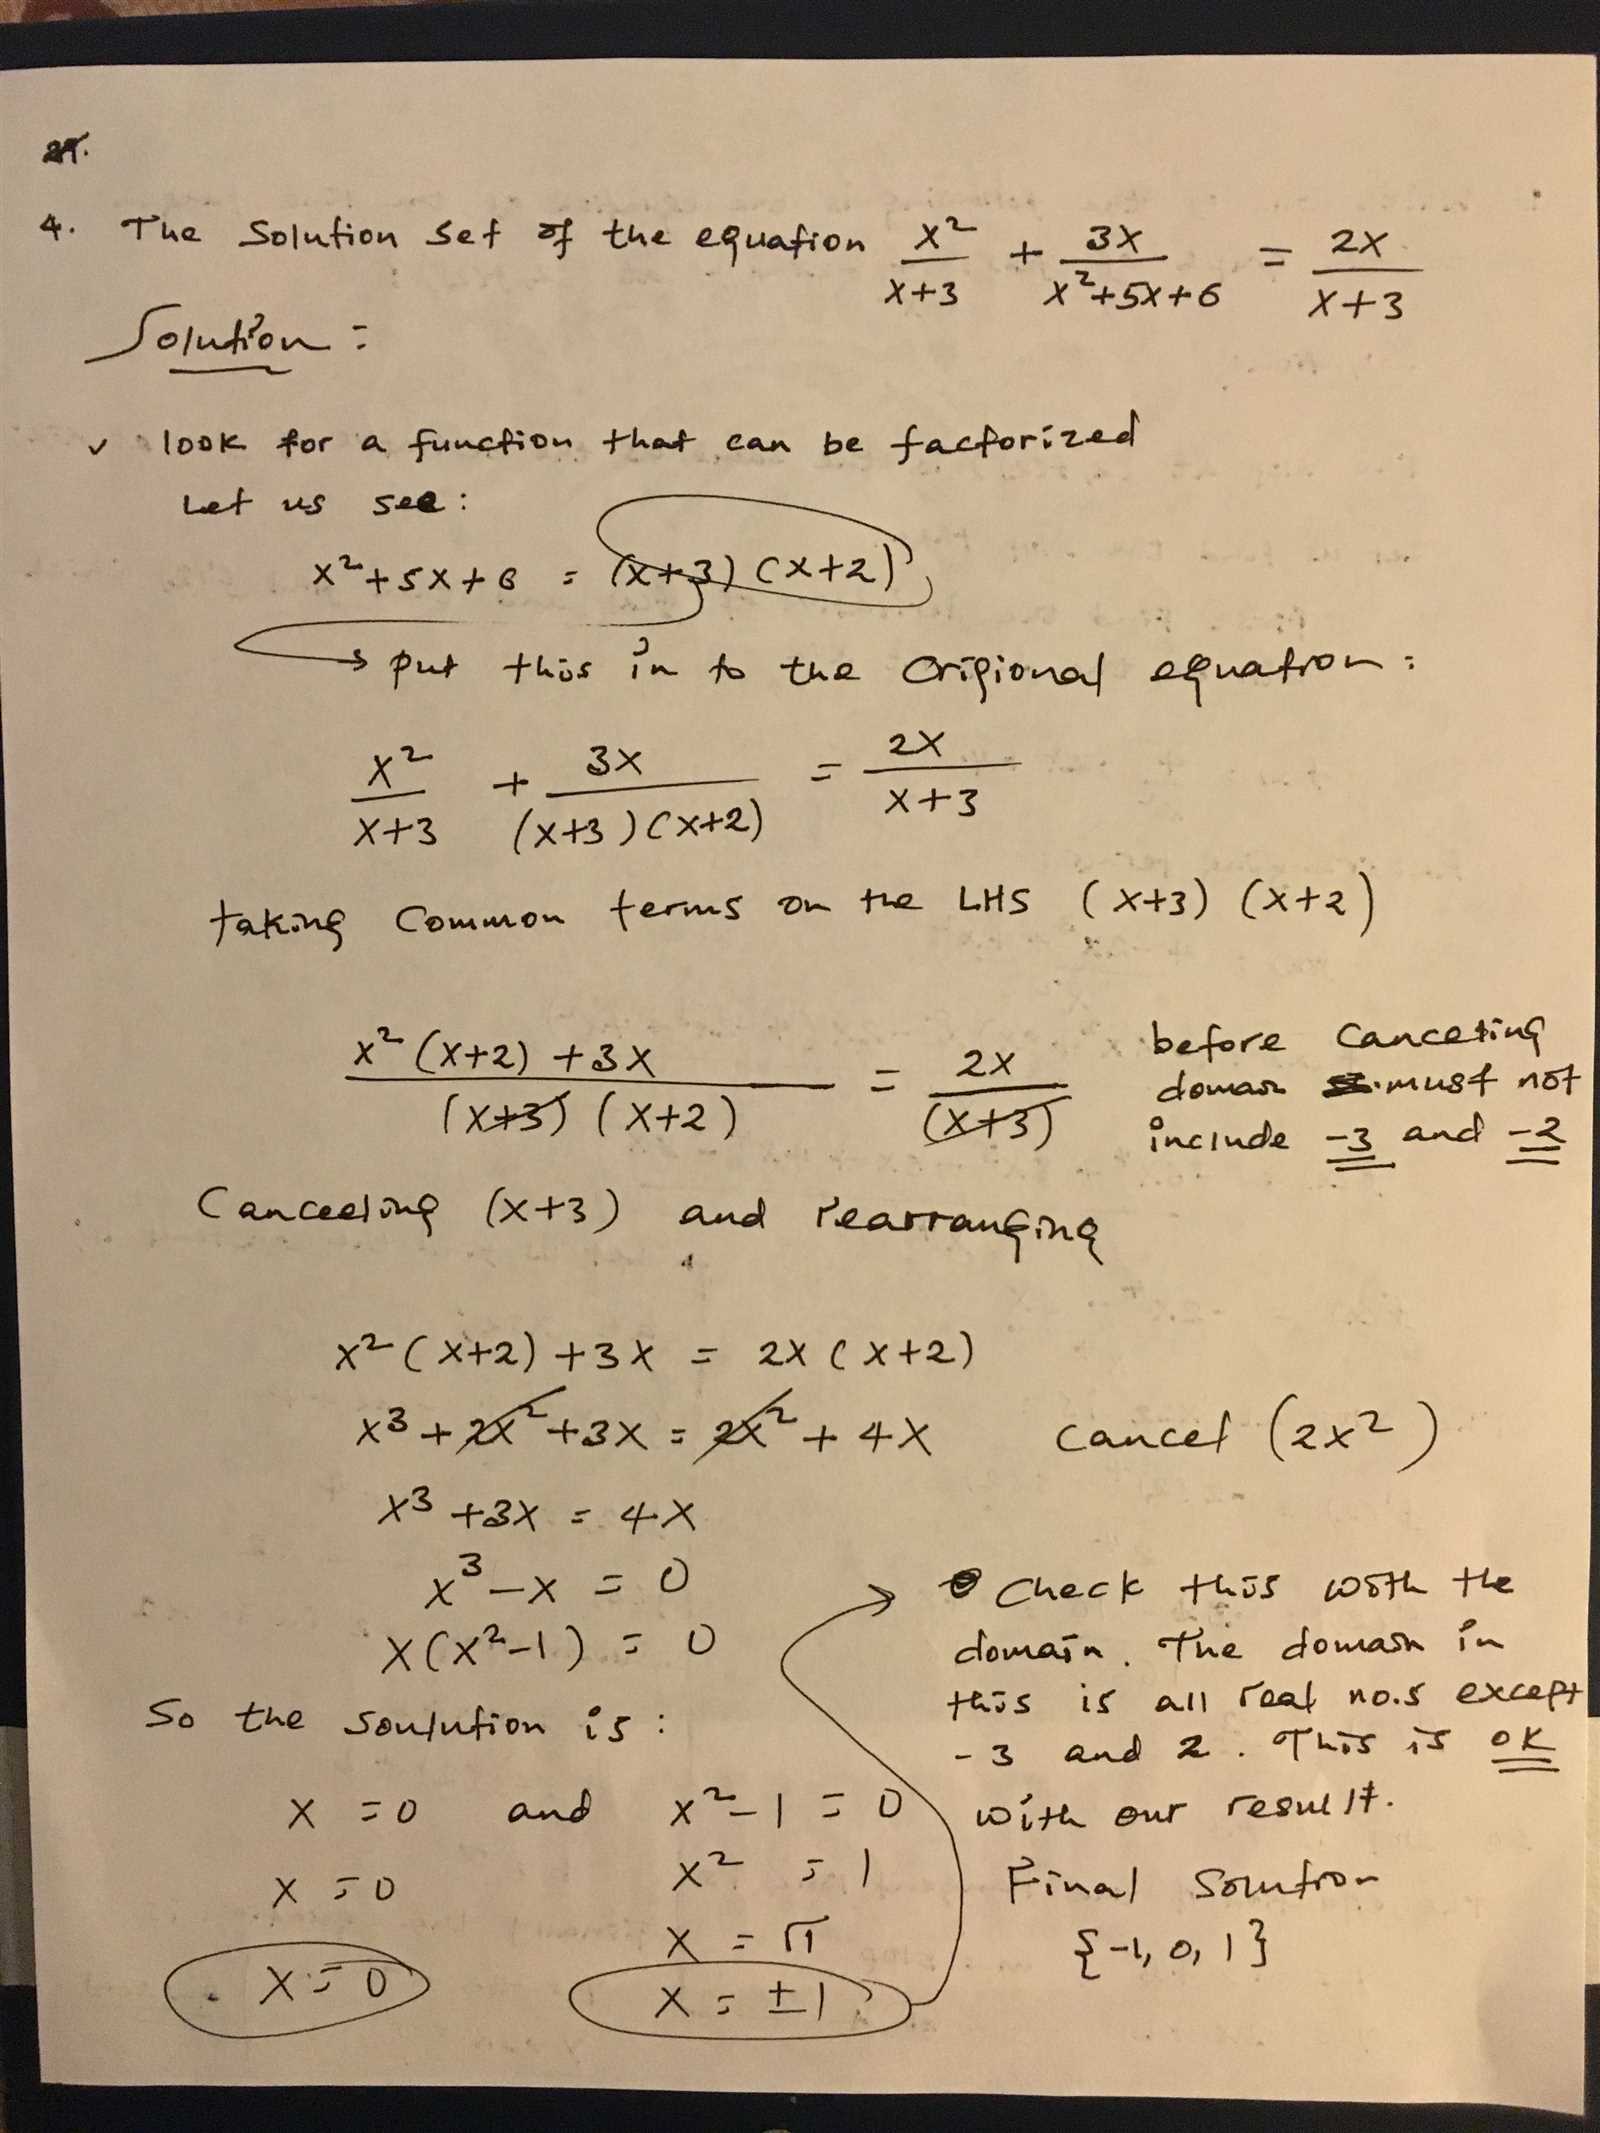 4. The Solution Set of the equation x²/(x+3) + 3x/(x²+5x+6) = 2x/(x+3)
Solution:
✓ look for a function that can be factorized
Let us see:
x²+5x+6 = (x+3)(x+2)
→ put this in to the Origional equation:
x²/(x+3) + 3x/((x+3)(x+2)) = 2x/(x+3)
taking Common terms on the LHS (x+3)(x+2)
(x²(x+2)+3x)/((x+3)(x+2)) = 2x/(x+3)
before Canceling
domain must not
include -3 and -2
Canceeling (x+3) and rearranging
x²(x+2)+3x = 2x(x+2)
x³+2x²+3x = 2x²+4x Cancel (2x²)
x³+3x = 4x
x³-x = 0
x(x²-1) = 0
So the Soulution is:
x = 0 and x²-1 = 0
x = 0 x² = 1
x = √1
x = 0 x = ±1
→ Check this with the
domain. The domain in
this is all real no.s except
-3 and 2. This is OK
with our result.
Final Solution
{-1, 0, 1}